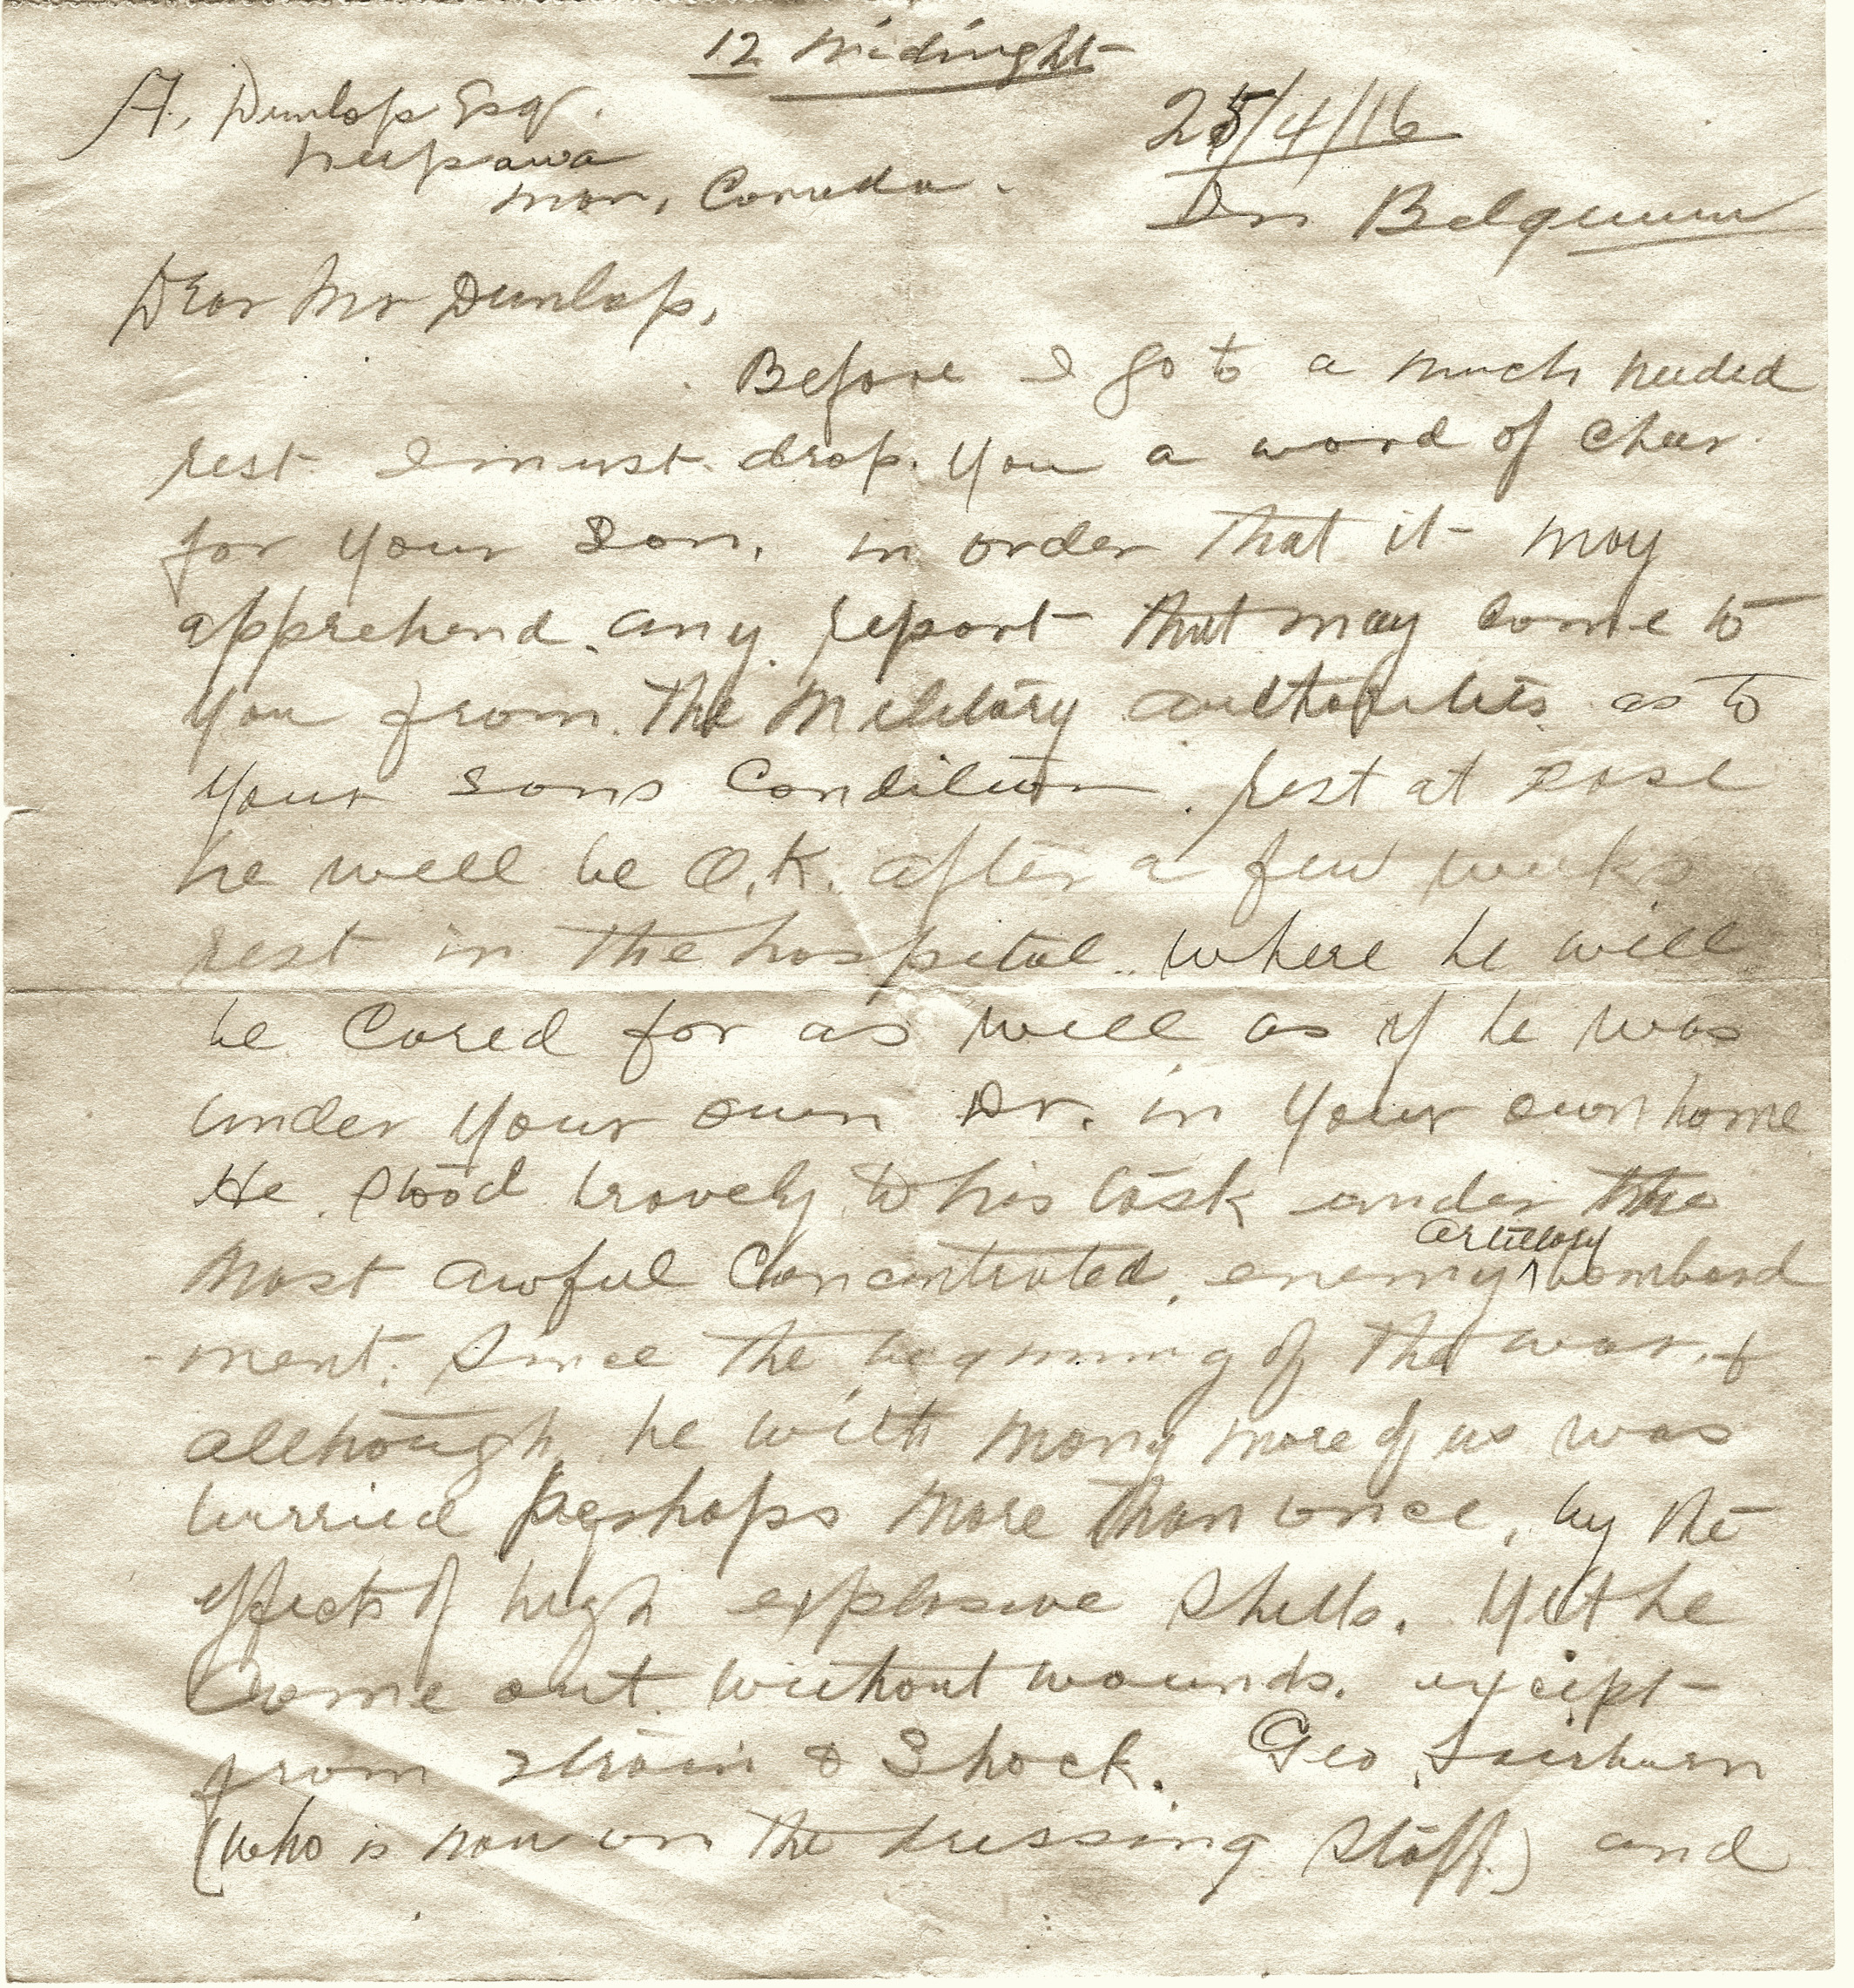 12 Midnight
A. Dunlop Esq.
Neepawa
Man, Canada.
25/4/16
In Belguium
Dear Mr Dunlop,
Before I go to a much needed
rest I must drop you a word of cheer
for your Son, in order that it may
apprehend any report that may come to
you from the Military authorities as to
your sons Condition. rest at ease
he will be O.K. after a few weeks
rest in the hospital where he will
be Cared for as well as if he was
under your own Dr. in your own home
He stood bravely to his task under the
most awful Concentrated enemy artillery bombard
-ment. Since the beginning of the war, &
although he with many more of us was
burried perhaps more than once, by the
effects of high explosive shells. Yet he
Come out without wounds. except
from strain & Shock. Geo. Fairburn
(who is now on the dressing staff) and